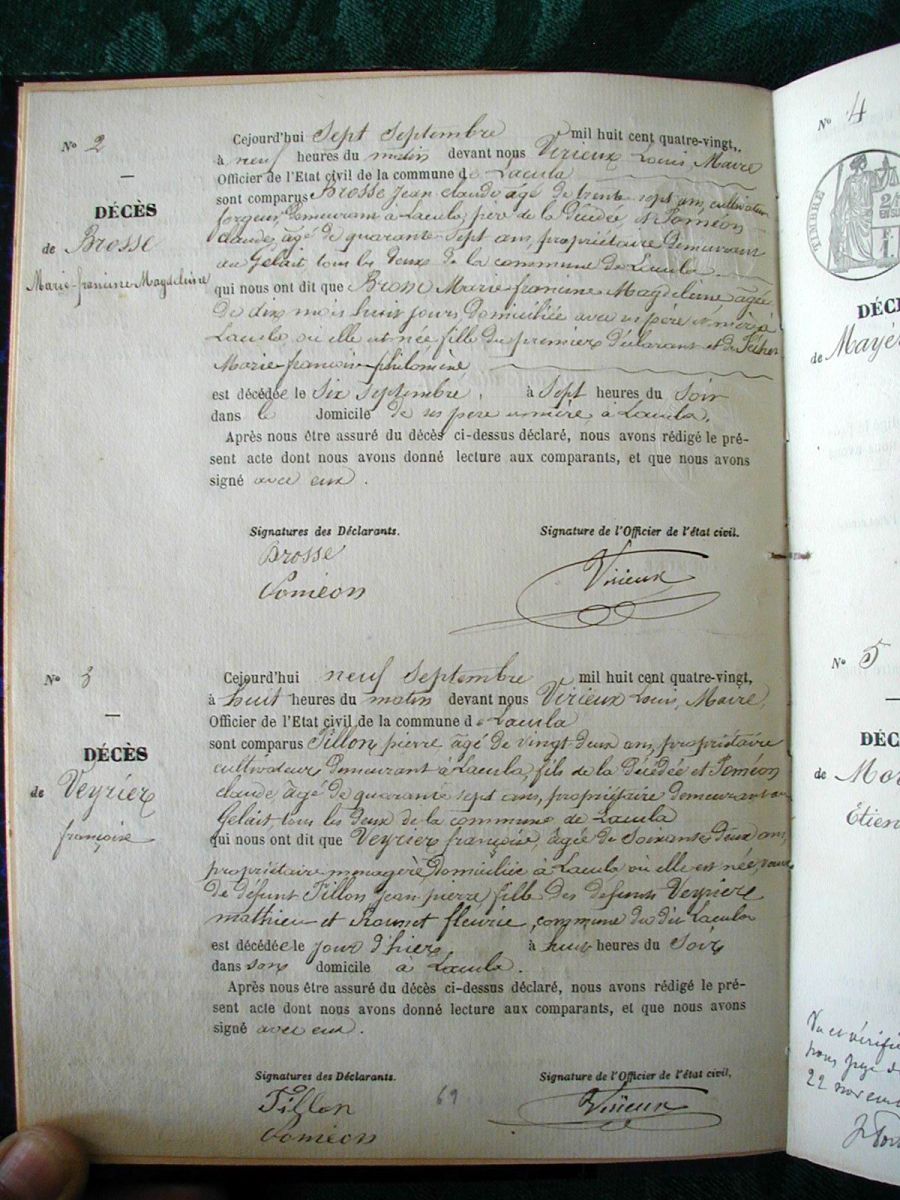 N° 2
DÉCÈS
de Brosse
Marie-francine-Magdeleine
Cejourd'hui Sept Septembre mil huit cent quatre-vingt,
à neuf heures du matin devant nous Virieux Louis, Maire
Officier de l'Etat civil de la commune de Lacula
sont comparus Brosse Jean claude âgé de trente sept ans, cultivateur
forgeur, demeurant à Lacula, père de la décédée et
claude, âgé de quarante-sept ans, propriétaire demeurant
au Gelait, tous les deux de la commune de Lacula.
qui nous ont dit que Brosse Marie-francine-Magdeleine agée
de dix mois huit jours domiciliée avec ses père et mère à
Lacula, où elle est née fille du premier déclarant et de
Marie-françoise-philomène
est décédée le Six Septembre, à Sept heures du Soir
dans le Domicile de ses père et mère, à Lacula.
Après nous être assuré du décès ci-dessus déclaré, nous avons rédigé le pré-
sent acte dont nous avons donné lecture aux comparants, et que nous avons
signé avec eux.
Signatures des Déclarants. Signature de l'Officier de l'état civil.
Brosse
Virieux
N° 3
DÉCÈS
de Veyrier
françoise
Cejourd'hui neuf Septembre mil huit cent quatre-vingt,
à huit heures du matin devant nous Virieux Louis, Maire,
Officier de l'Etat civil de la commune de Lacula
sont comparus Fillon, pierre âgé de vingt deux ans, propriétaire
cultivateur, demeurant à Lacula, fils de la décédée et
claude, âgé de quarante sept ans, propriétaire demeurant au
Gelait, tous les deux de la commune de Lacula
qui nous ont dit que Veyrier françoise, âgée de Soixante deux ans,
propriétaire menagère domiciliée à Lacula où elle est née, veuve
de défunt Fillon jean pierre, fille des defunts Veyrier
mathieu et Rousset fleurie, commune du dit Lacula
est décédée le jour d'hier, à huit heures du Soir
dans son domicile à Lacula.
Après nous être assuré du décès ci-dessus déclaré, nous avons rédigé le pré-
sent acte dont nous avons donné lecture aux comparants, et que nous avons
signé avec eux.
Signatures des Déclarants. Signature de l'Officier de l'état civil.
Fillon
69
Virieux
N° 4
TIMBRE
DÉC
de
N° 5
DÉC
de Mor
Étien
Vu et vérifié
22 novem